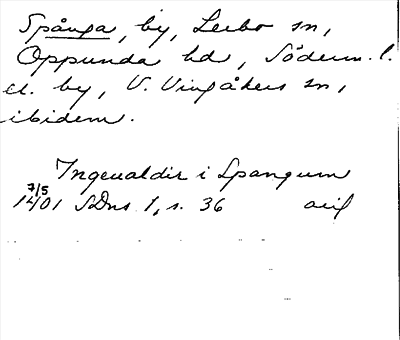 Spånga, by, Lerbo sn,
Oppunda hd, Söderm. l.
el. by, V. Vingåkers sn,
ibidem.
Ingeualdir i Spangum
7/5
1401 SDns 1, s. 36 avs